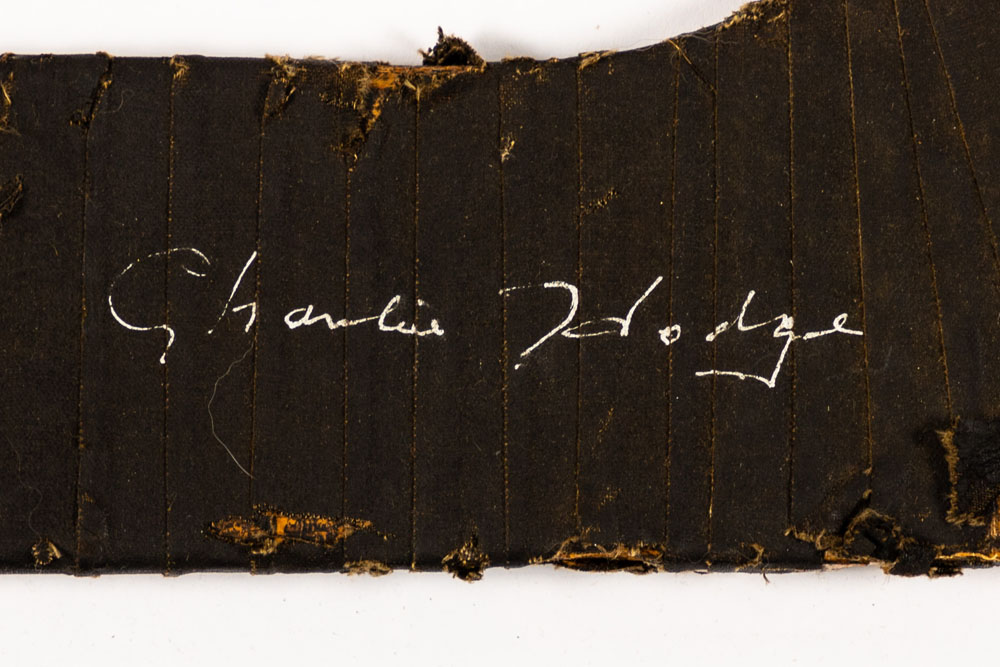 Charlie Hodge